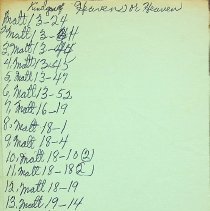 Kingdom Heavens or Heaven
Matt 13-24
2, Matt 13-44
3, Matt 13-45
4, Matt 13-45
5, Matt 13-47
6, Matt 13-52
7, Matt 16-19
8, Matt 18-1
9, Matt 18-4
10, Matt 18-10 (2)
11, Matt 18-18 (2)
12, Matt 18-19
13, Matt 19-14